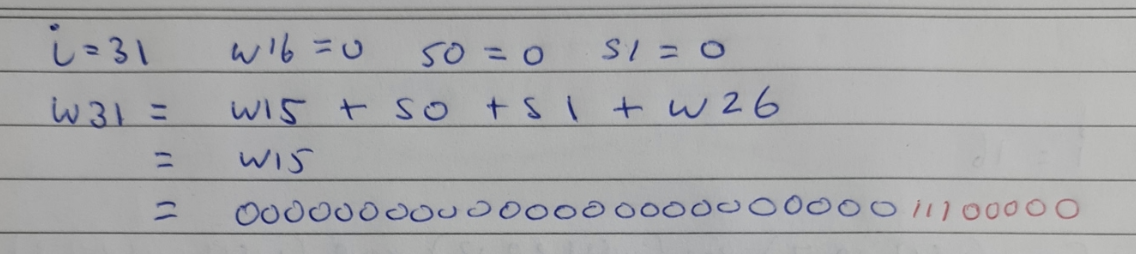 i=31 w16=0 s0=0 s1=0
w31 = w15 + s0 + s1 + w26
= w15
= 00000000000000000000000011100000